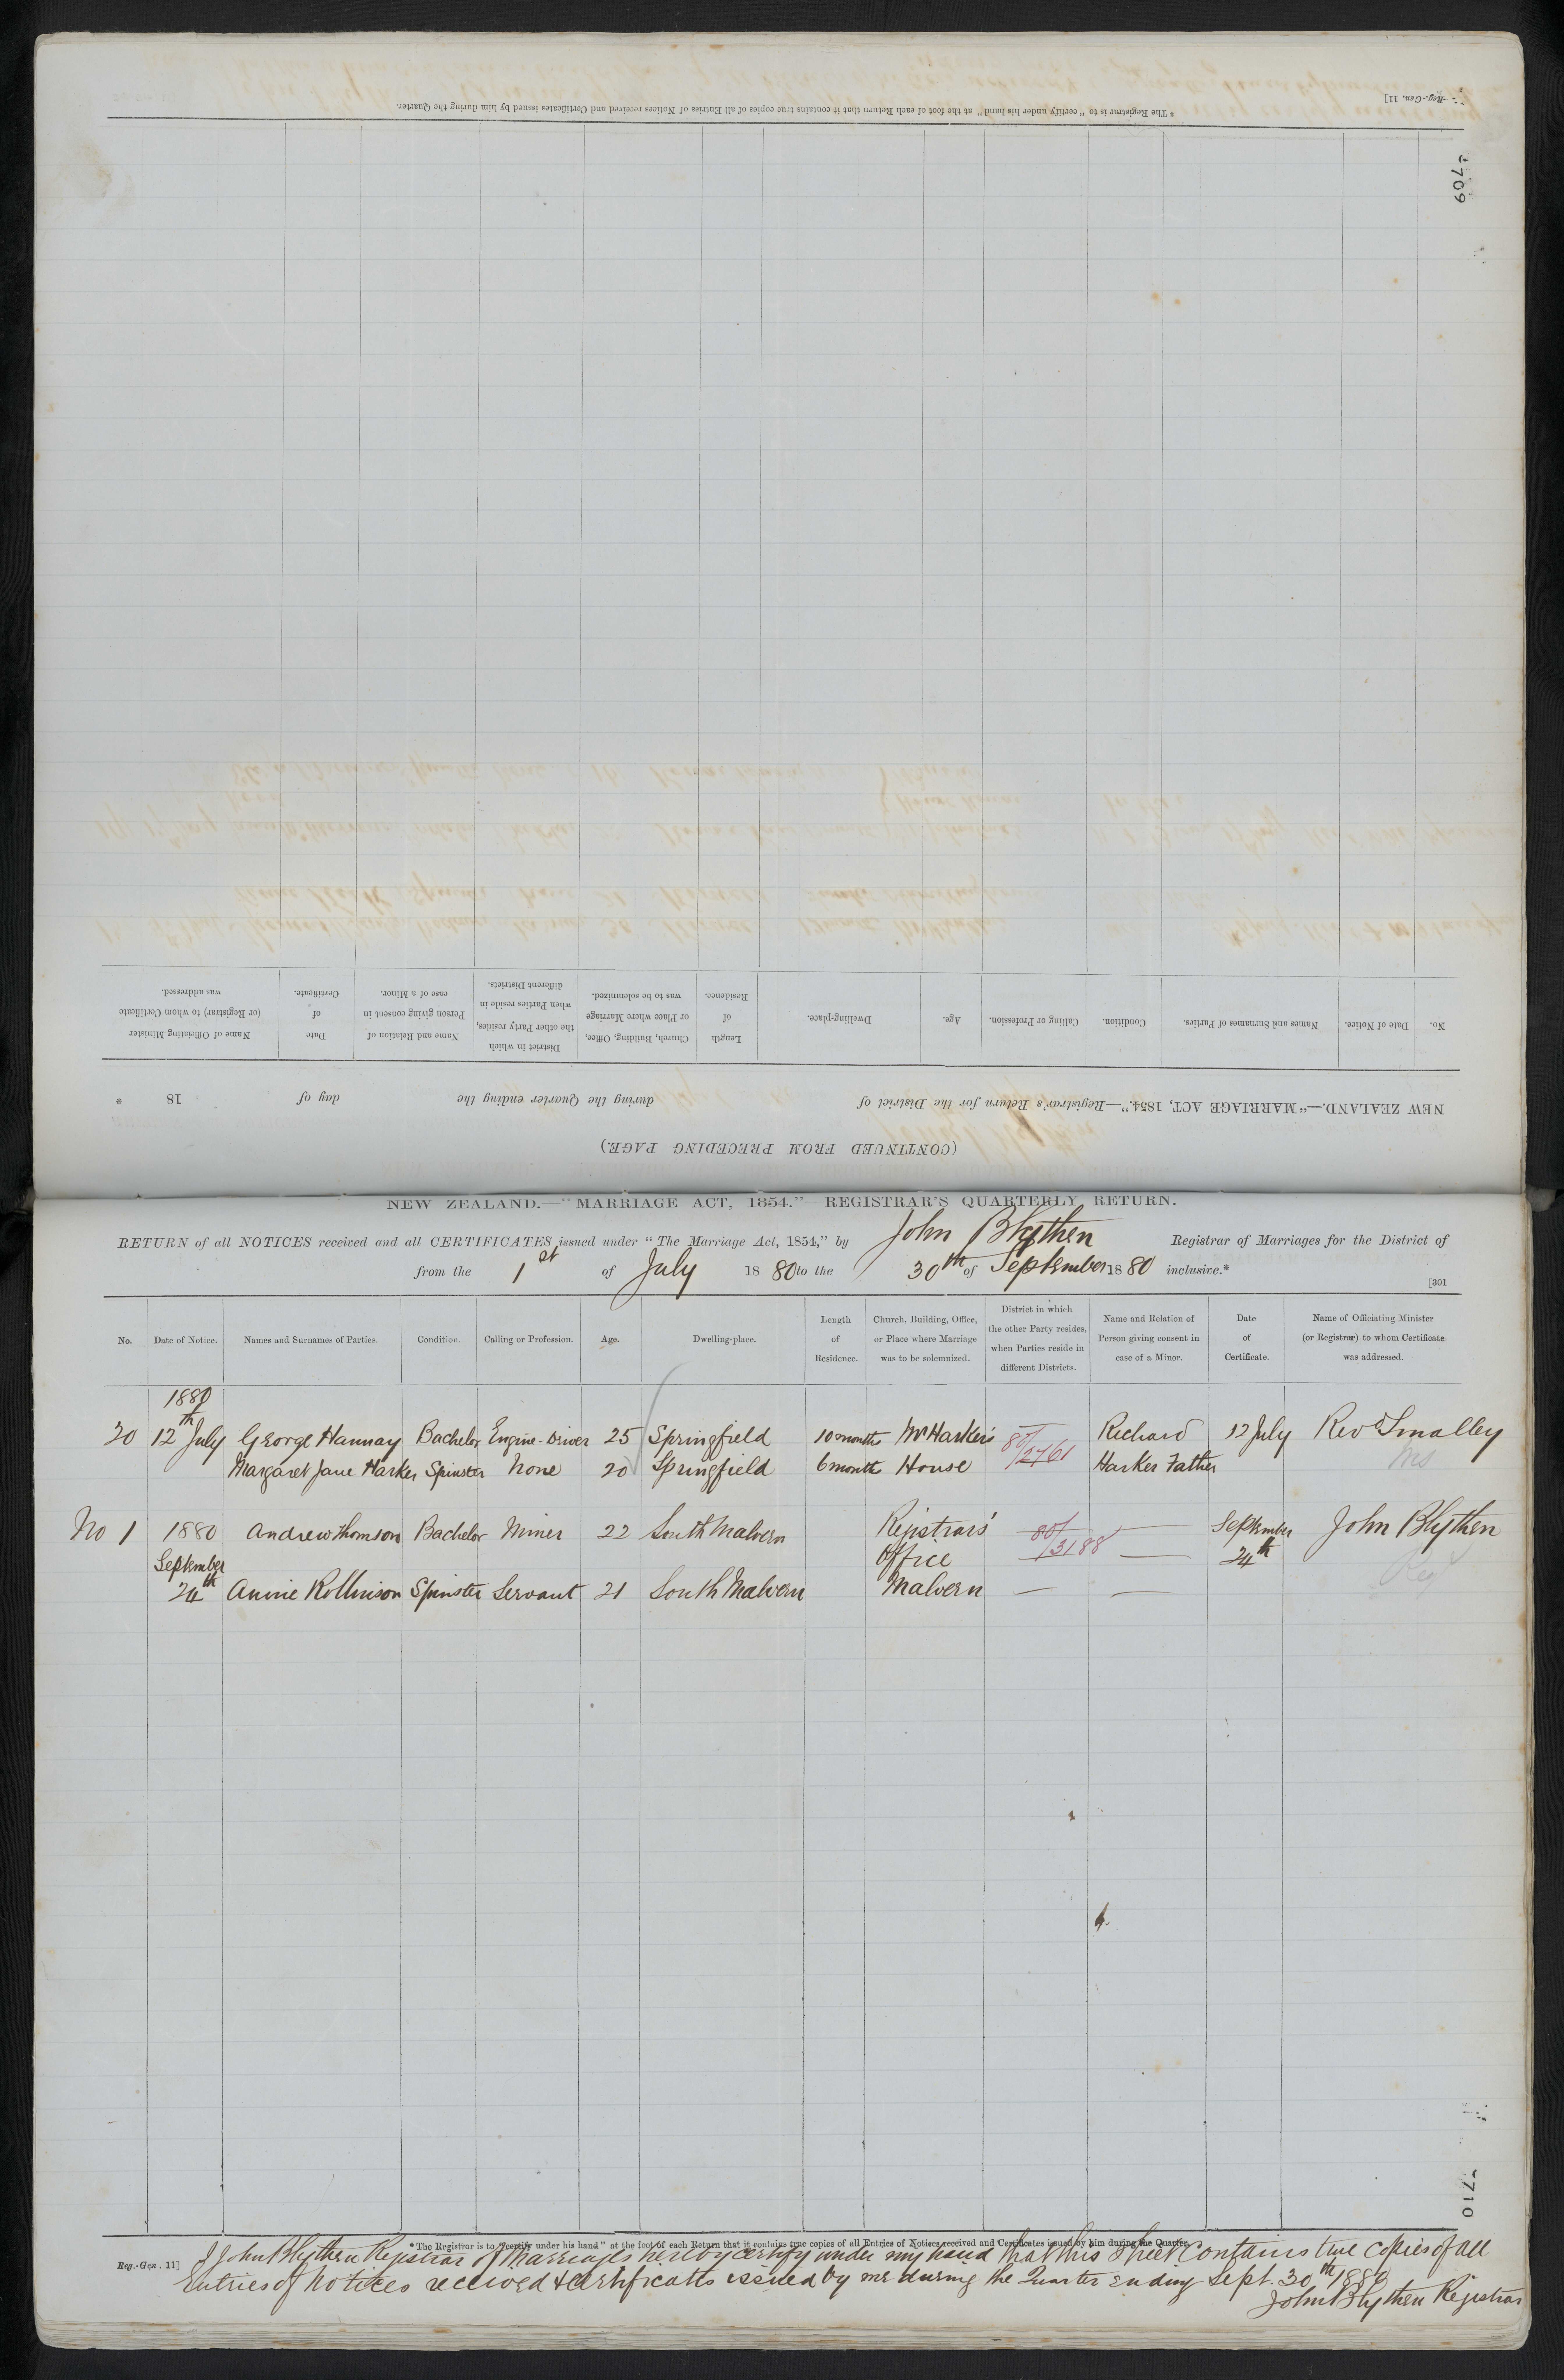 * The Registrar is to "certify under his hand" at the foot of each Return that it contains true copies of all Entries of Notices received and Certificates issued by him during the Quarter.
Reg.-Gen. 11]
709
No.
Date of Notice.
Names and Surnames of Parties.
Condition.
Calling or Profession.
Age.
Dwelling-place.
Length
of
Residence.
Church, Building, Office,
or Place where Marriage
was to be solemnized.
District in which
the other Party resides,
when Parties reside in
different Districts.
Name and Relation of
Person giving consent in
case of a Minor.
Date
of
Certificate.
Name of Officiating Minister
(or Registrar) to whom Certificate
was addressed.
NEW ZEALAND.—"MARRIAGE ACT, 1854."—Registrar's Return for the District of during the Quarter ending the day of 18 *
(CONTINUED FROM PRECEDING PAGE.)
NEW ZEALAND.—"MARRIAGE ACT, 1854."—REGISTRAR'S QUARTERLY RETURN.
RETURN of all NOTICES received and all CERTIFICATES issued under "The Marriage Act, 1854," by John Blythen Registrar of Marriages for the District of
from the 1st of July 18 80 to the 30th of September 18 80 inclusive.*
[301
No.
Date of Notice.
Names and Surnames of Parties.
Condition.
Calling or Profession.
Age.
Dwelling-place.
Length
of
Residence.
Church, Building, Office,
or Place where Marriage
was to be solemnized.
District in which
the other Party resides,
when Parties reside in
different Districts.
Name and Relation of
Person giving consent in
case of a Minor.
Date
of
Certificate.
Name of Officiating Minister
(or Registrar) to whom Certificate
was addressed.
1880
20 12th July George Hannay Bachelor Engine-Driver 25 Springfield 10 months Mr Harker's 80/2761 Richard 12 July Revd Smalley
Margaret Jane Harker Spinster None 20 Springfield 6 months House Harker Father
No 1 1880 Andrew Thomson Bachelor Miner 22 South Malvern Registrars' 80/3188 — September John Blythen
September Office — 24th
24th Annie Rollinson Spinster Servant 21 South Malvern Malvern — —
710
* The Registrar is to "certify under his hand" at the foot of each Return that it contains true copies of all Entries of Notices received and Certificates issued by him during the Quarter.
Reg.-Gen. 11]
I John Blythen Registrar of Marriages hereby certify under my hand that this Sheet Contains true Copies of all
Entries of Notices received & Certificates issued by me during the Quarter ending Sept. 30th 1880
John Blythen Registrar